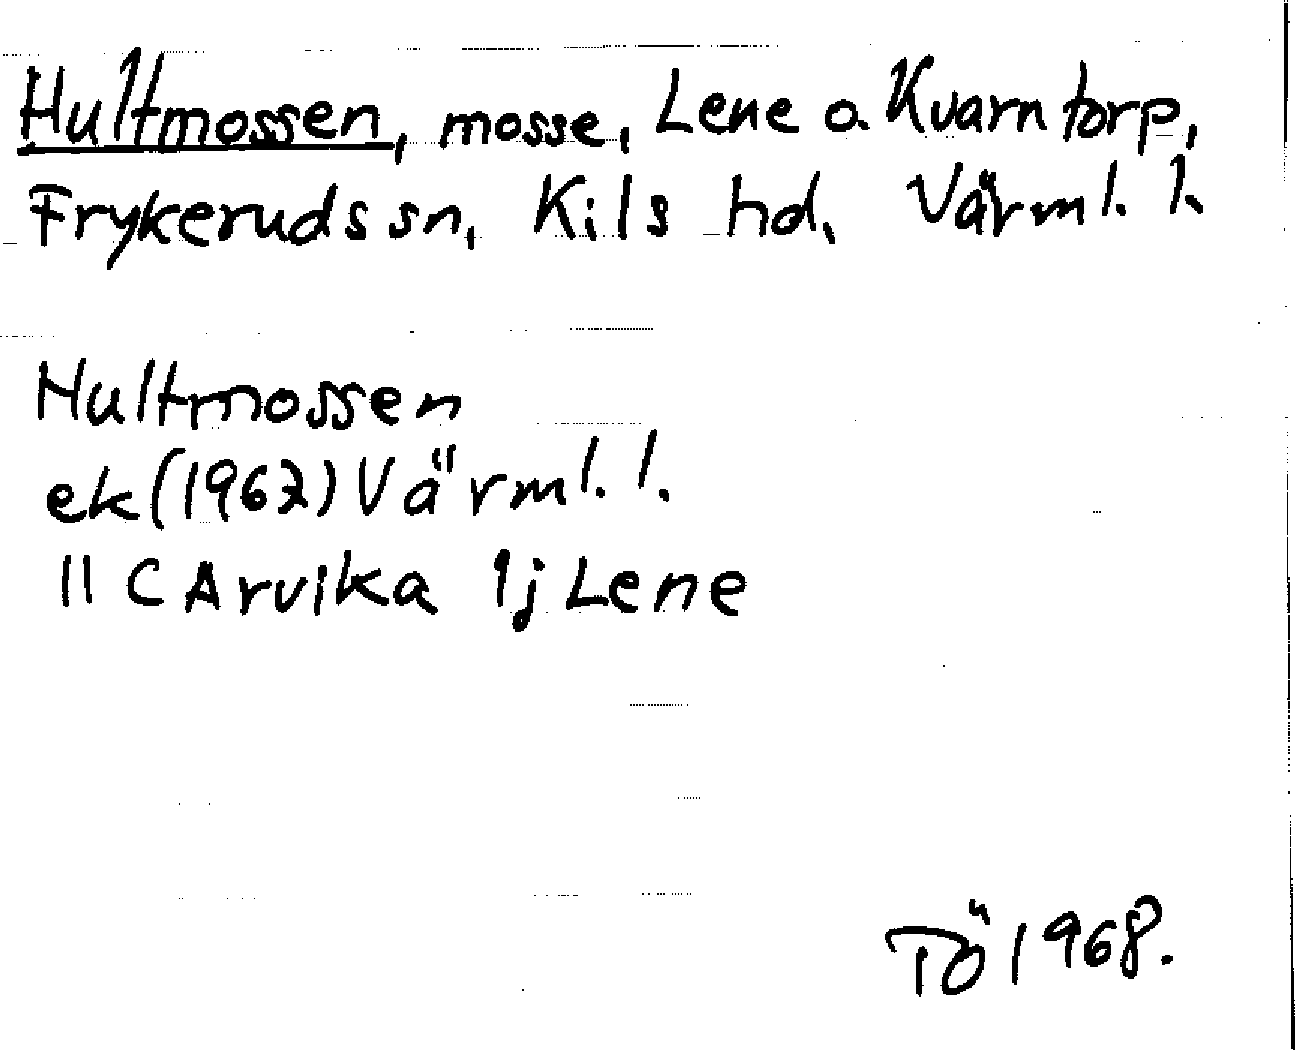 Hultmossen, mosse, Lene o. Kvarntorp,
Frykeruds sn, Kils hd, Värml. l.
Hultmossen
ek (1962) Värml. l.
11 C Arvika 1j Lene
TÖ 1968.